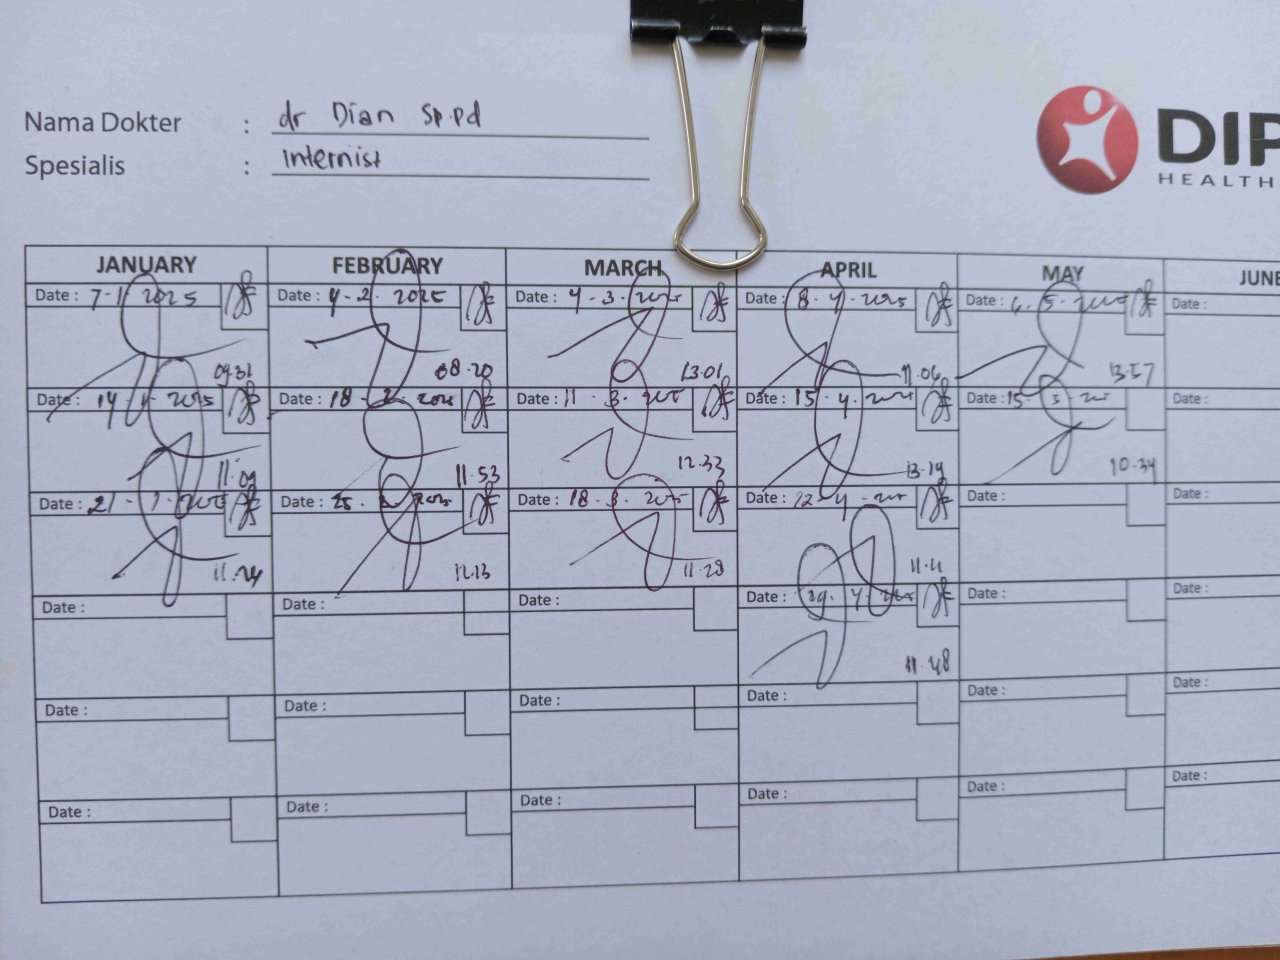 Nama Dokter : dr Dian Sp.pd
Spesialis : Internist
DIP
HEALTH
JANUARY FEBRUARY MARCH APRIL MAY JUNE
Date : 7-1 2025 Date : 4-2. 2025 Date : 4-3. 2025 Date : 8-4-2025 Date : 6.5.2025 Date :
09.32 08.20 13.01 11.06 13.57
Date : 14 1-2025 Date : 18-2-2025 Date : 11.3.2025 Date : 15.4.2025 Date : 15. Date :
11.09 11.53 12.33 13.19 10.34
Date : 21-1-2025 Date : 25. 2025 Date : 18-3.2025 Date : 22-4- Date : Date :
11.24 12.13 11.28 11.
Date : Date : Date : Date : 29.4.2025 Date : Date :
11.48
Date : Date : Date : Date : Date : Date :
Date : Date : Date : Date : Date : Date :